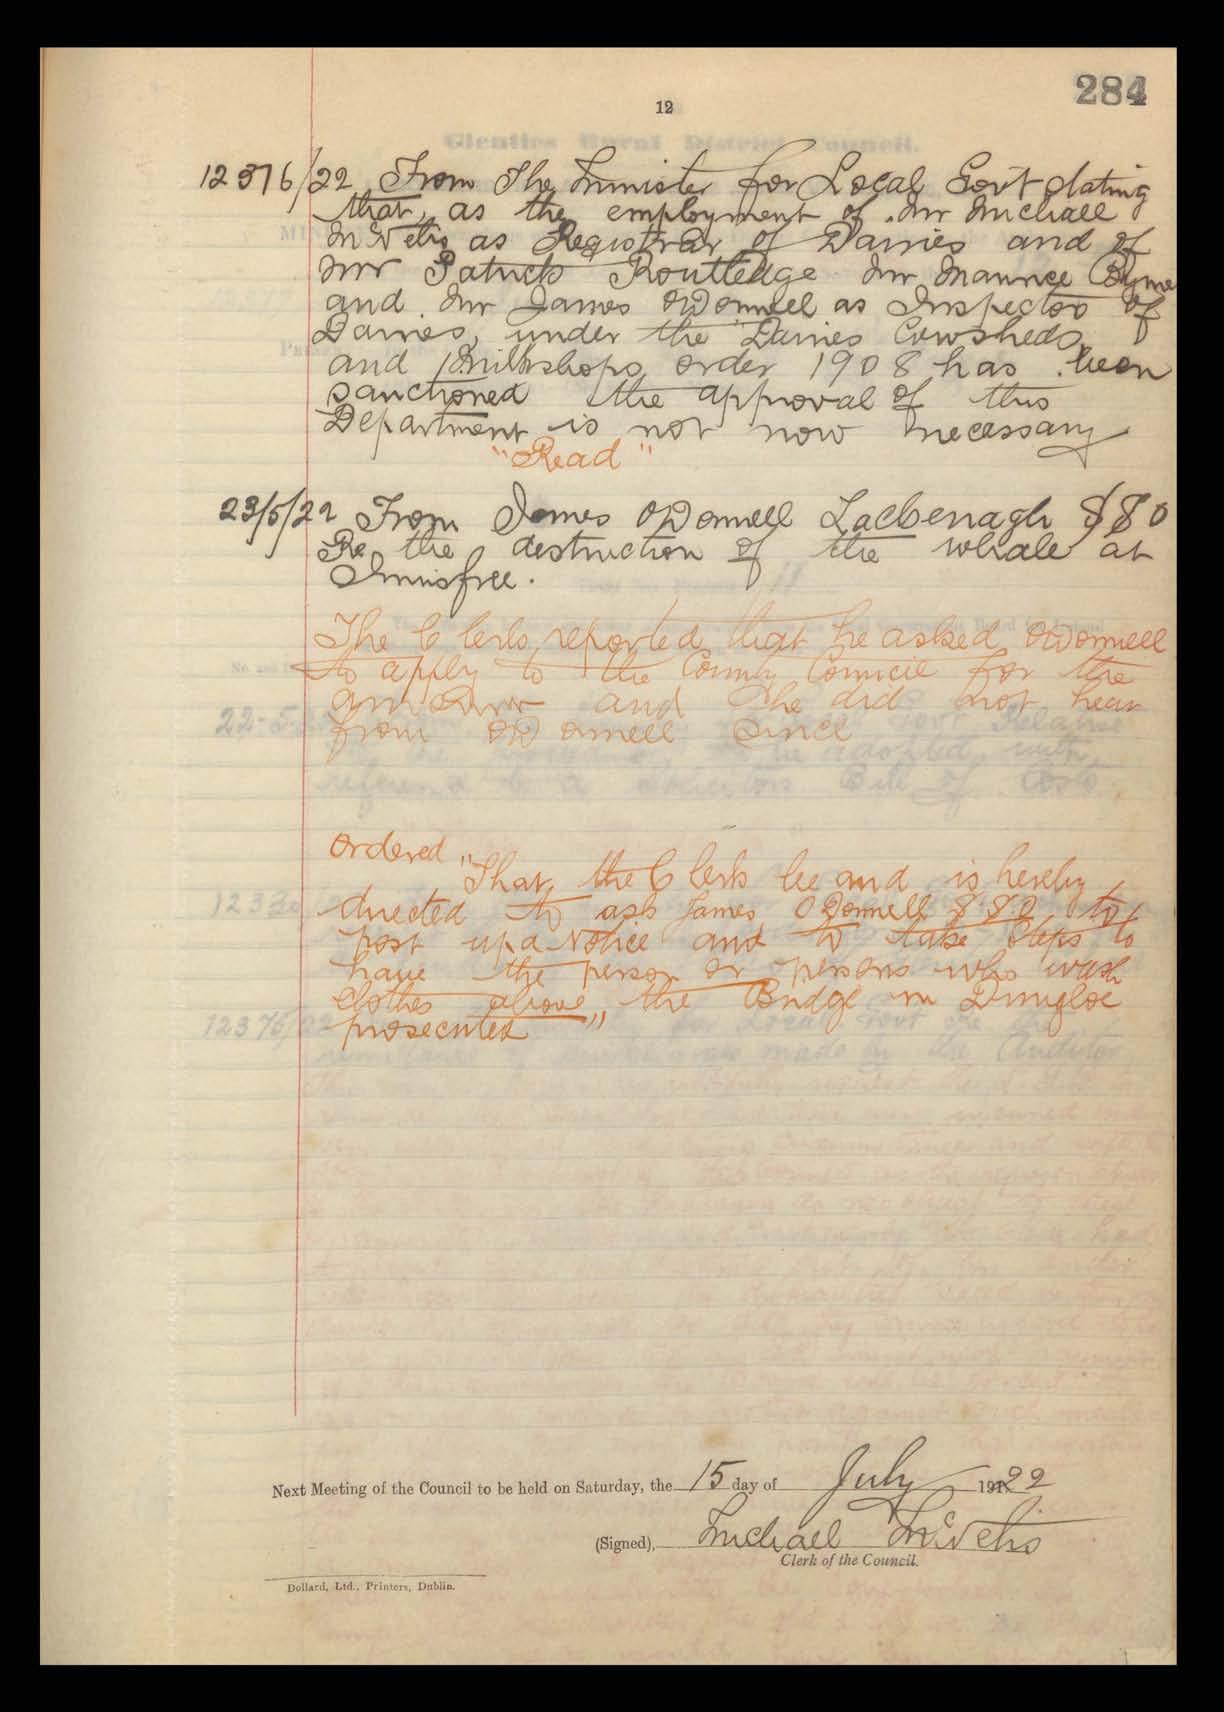 284
12
12376/22 From The Minister for Local Govt stating
that, as the employment of Mr Michael
McNelis as Registrar of Dairies and of
Mr Patrick Routledge Mr Maurice Byrne
and Mr James O'Donnell as Inspectors of
Dairies, under the Dairies Cowsheds,
and Milkshops order 1908 has been
sanctioned the approval of this
Department is not now necessary
"Read"
23/5/22 From James O'Donnell Lackenagh SSO
Re the destruction of the whale at
Innisfree.
The Clerk reported that he asked O'Donnell
to apply to the County Council for the
amount and he did not hear
from O'Donnell since
Ordered "That, the Clerk be and is hereby
directed to ask James O'Donnell SSO, to
post up a Notice and to take steps to
have the person or persons who wash
clothes above, the Bridge in Dungloe
prosecuted"
Next Meeting of the Council to be held on Saturday, the 15 day of July 1922
(Signed), Michael McNelis
Clerk of the Council.
Dollard, Ltd., Printers, Dublin.